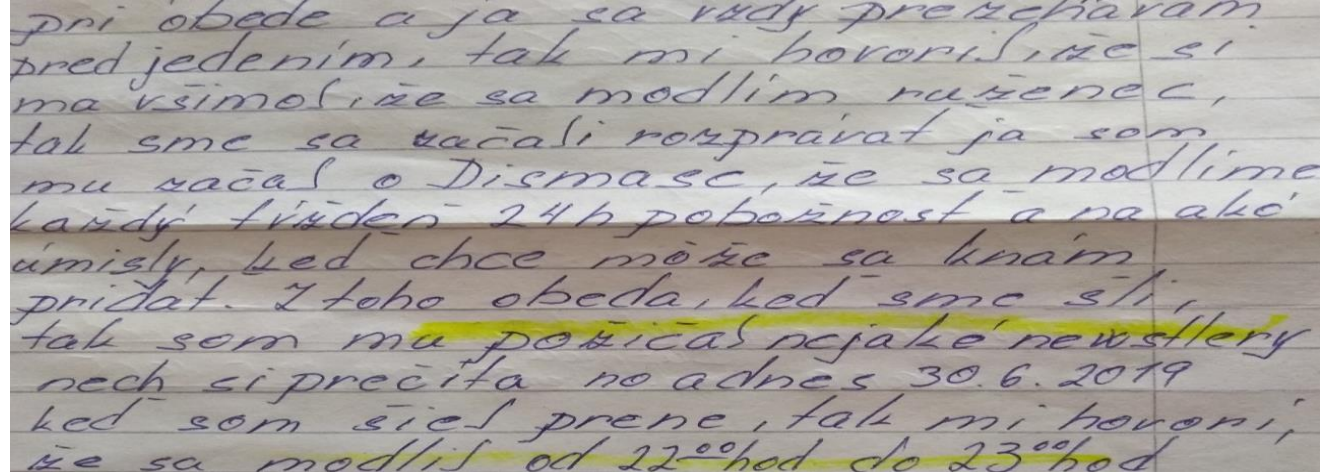 pri obede a ja sa vždy prežehávam
pred jedením, tak mi hovoril, že si
ma všimol, že sa modlím ruženec,
tak sme sa začali rozprávat ja som
mu začal o Dismasc, že sa modlíme
každý tŕždeň 24h pobožnost a na aké
úmisly, keď chce môže sa knám
pridat. Z toho obeda, keď sme šli,
tak som mu požičal nejaké newstlery
nech si prečíta no a dnes 30.6. 2019
keď som šiel prene, tak mi hovorí,
že sa modlil od 22⁰⁰hod do 23⁰⁰hod